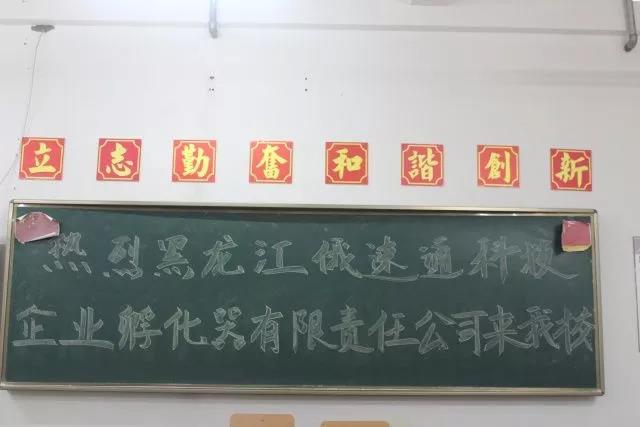 立志勤奮和諧創新
热烈黑龙江俄速通科技
企业孵化器有限责任公司来我校